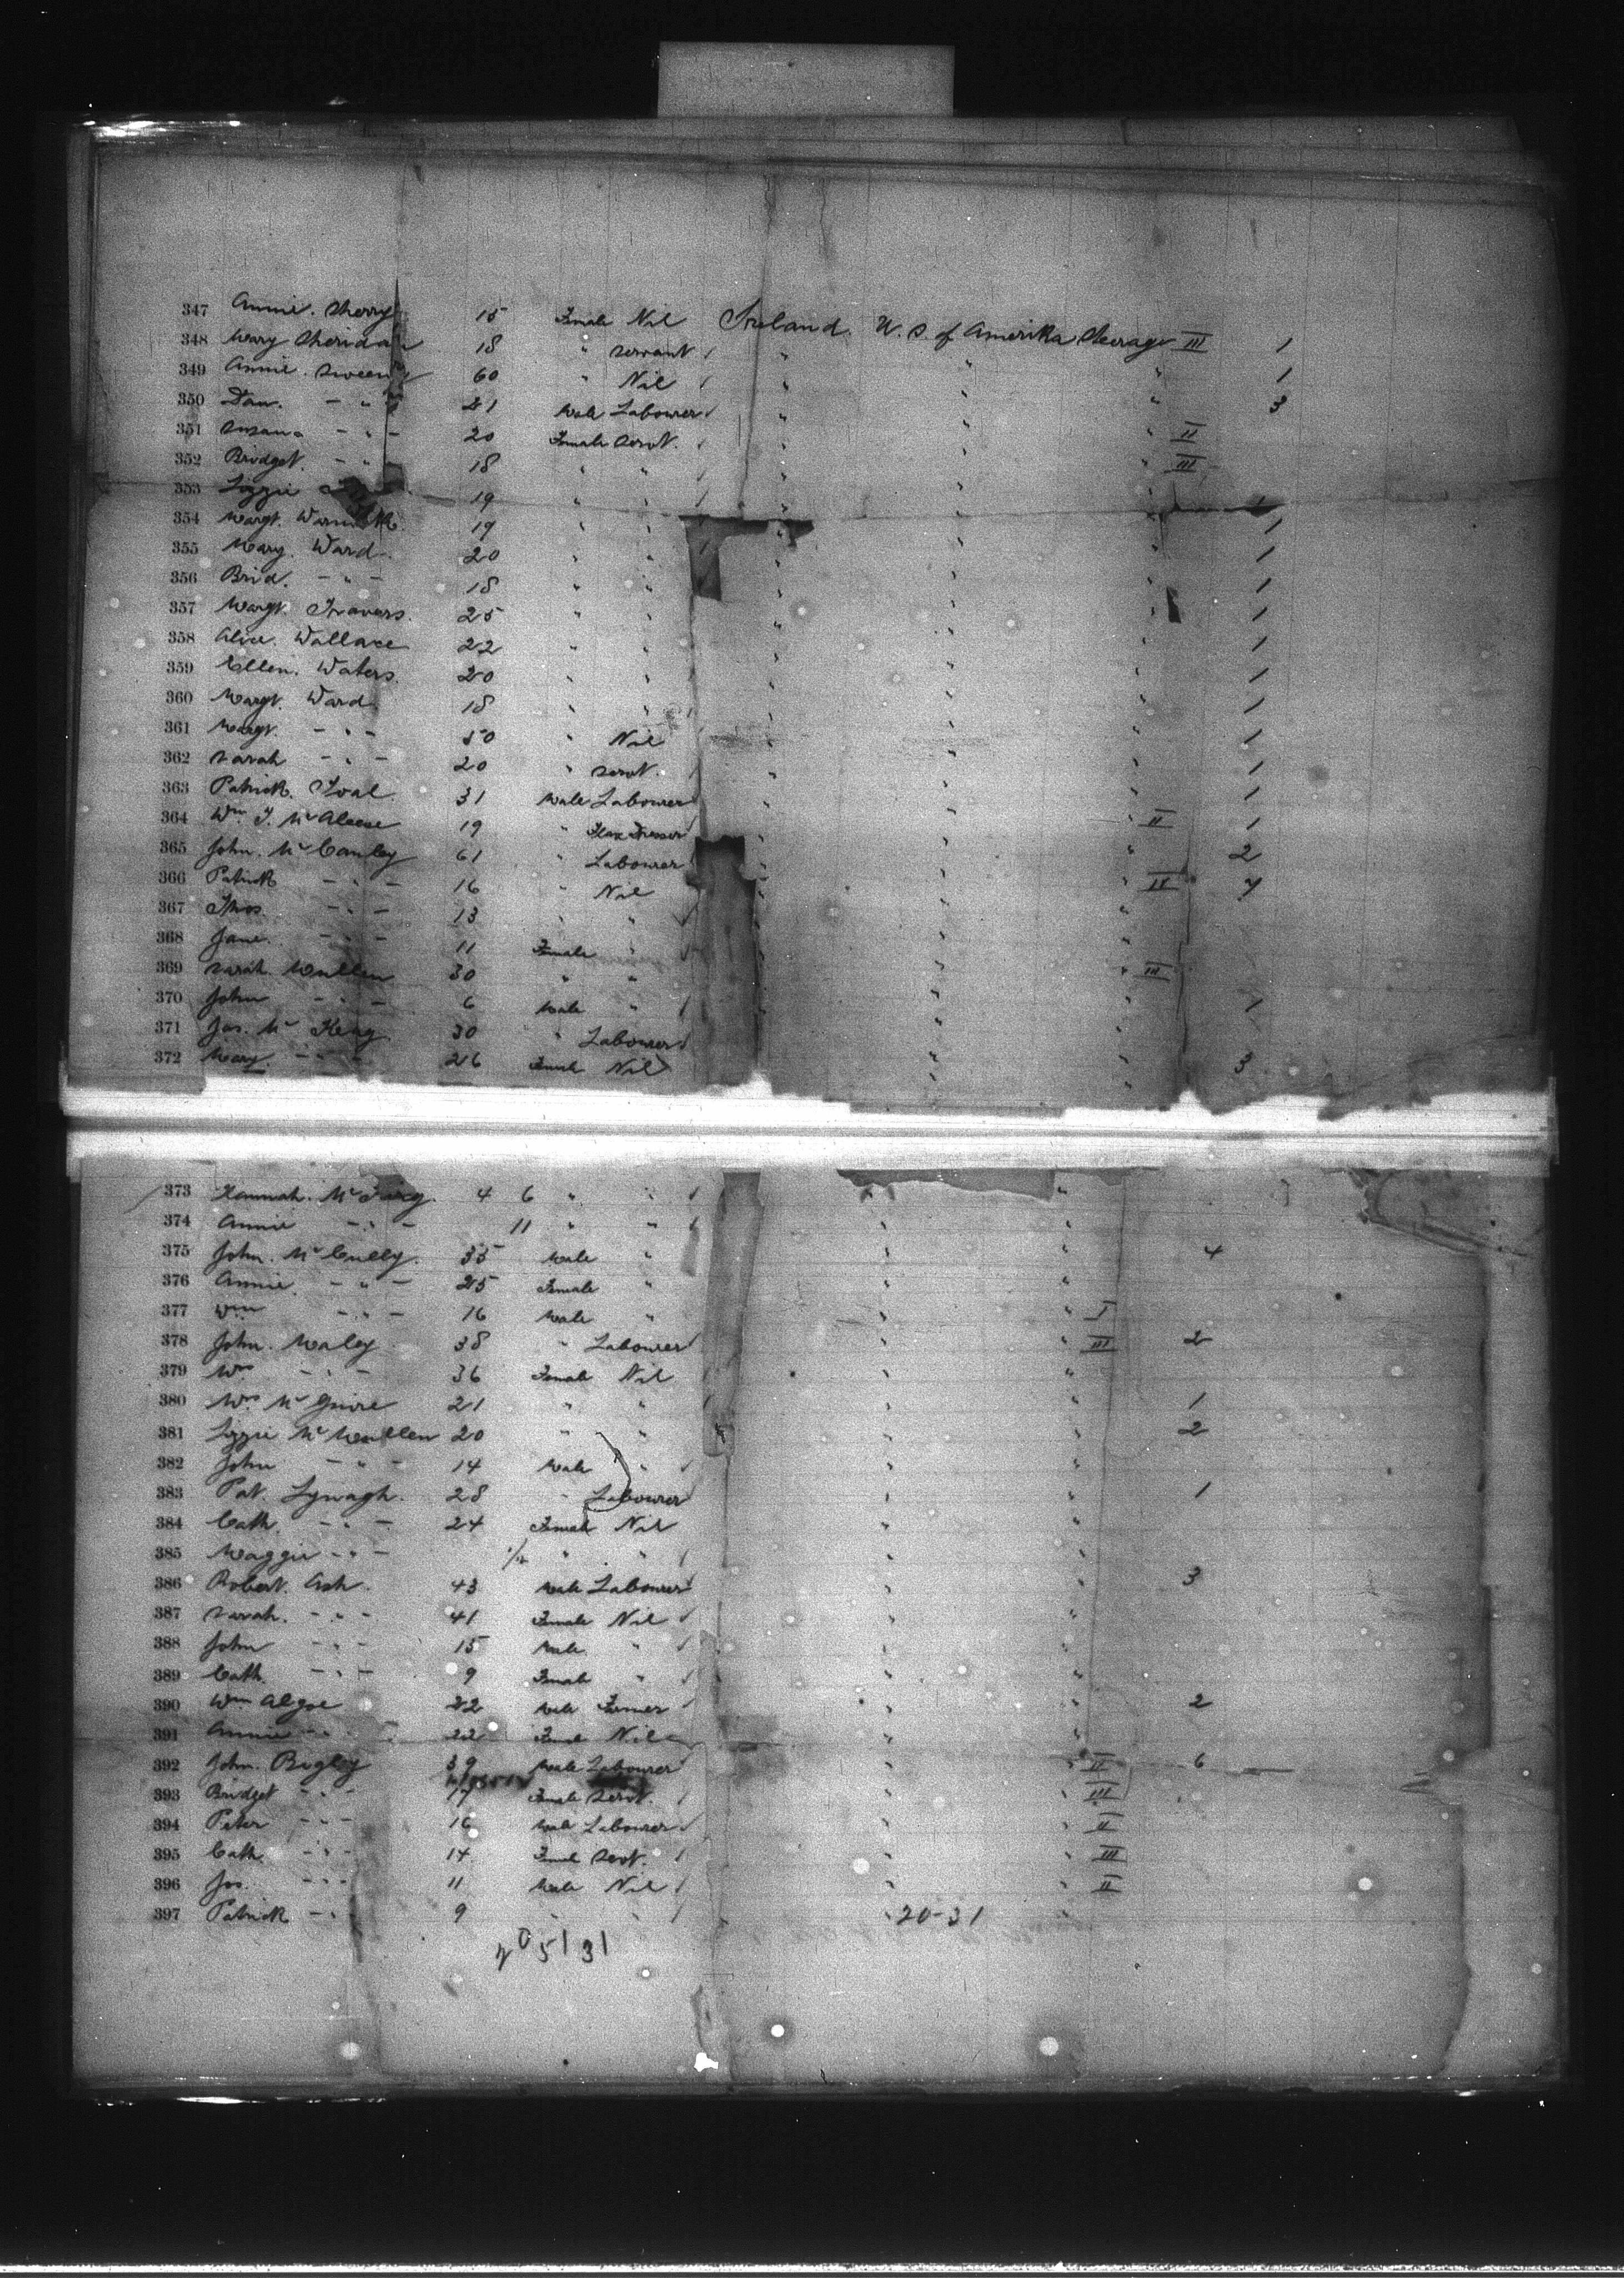 347 Annie. Sherry 15 Female Nil Ireland. U. S. of Amerika Steerage III 1
348 Mary Sheridan 18 " Servant " " " 1
349 Annie. Sweeny 60 " Nil " " " 3
350 Dan. - " - 21 Male Labourer " " " II
351 Susan - " - 20 Female Servt. " " " III
352 Bridget. - " - 18 " " " " "
353 Lizzie 19 " " " " " 1
354 Margt. 19 " " " " " 1
355 Mary. Ward. 20 " " " " " 1
356 Brid. - " - 18 " " " " " 1
357 Margt. Travers. 25 " " " " " 1
358 Alice. Wallace 22 " " " " " 1
359 Ellen. Waters. 20 " " " " " 1
360 Margt. Ward. 18 " " " " " 1
361 Margt. - " - 50 " Nil " " " 1
362 Sarah - " - 20 " Servt. " " " 1
363 Patrick. Toal. 31 Male Labourer " " " II 1
364 Wm J. McAleese 19 " Flax Dresser " " " 2
365 John. McCauley 61 " Labourer " " " II
366 Patrick - " - 16 " Nil " " "
367 Thos. - " - 13 " " " " "
368 Jane. - " - 11 Female " " " " III
369 Sarah. Mullen 30 " " " " " 1
370 John - " - 6 Male " " " "
371 Jas. Mc 30 " Labourer " " " 3
372 Mary. - " - 26 Female Nil " "
373 Hannah. Mc 4 6 " " "
374 Annie - " - 11 " " " "
375 John. McCully. 35 Male " " " 4
376 Annie. - " - 25 Female " " "
377 Wm - " - 16 Male " " " I
378 John. Maley 38 " Labourer " " III 2
379 Mrs - " - 36 Female Nil " "
380 Mrs McGuire 21 " " " " 1
381 Lizzie McMullen 20 " " " " 2
382 John - " - 14 Male " " "
383 Pat. Lynagh. 28 " Labourer " " 1
384 Cath. - " - 24 Female Nil " "
385 Maggie - " - " " " "
386 Robert. Ash. 43 Male Labourer " " 3
387 Sarah. - " - 41 Female Nil " "
388 John - " - 15 Male " " "
389 Cath. - " - 9 Female " " "
390 Wm Algoe 22 Male Farmer " " 2
391 Annie - " - 22 Female Nil " "
392 John. Begley 39 Male Labourer " " II 6
393 Bridget - " - 17 Female Servt. " " III
394 Peter - " - 16 Male Labourer " " II
395 Cath. - " - 14 Female Servt. " " III
396 Jos. - " - 11 Male Nil " " II
397 Patrick - " - 9 " " " 20-31 "
5131